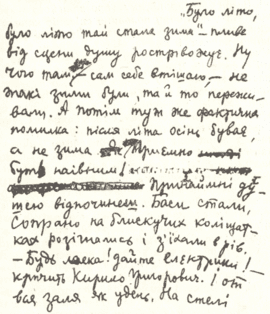 „Було літо,
було літо тай стала зима" – пливе
від сцени душу розтрівожує. Ну
чого там, – сам себе втішаю, – не
такі зими були, та й то пережи-
вали. А потім тут же фактична
помилка: після літа осінь буває,
а не зима. Приємно
бути наівним!
Принаймні ду-
шею відпочинеш. Баси стали,
Сопрано на блискучих коліщат-
ках розігнались і з'їхали в рів.
– Будь ласка! дайте електрики! –
кричить Кирило Григорович. І от
вся заля як удень. На стелі